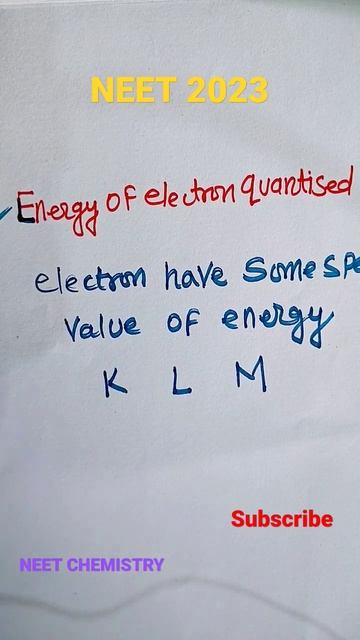 NEET 2023
Energy of electron quantised
electron have some
value of energy
K L M
Subscribe
NEET CHEMISTRY